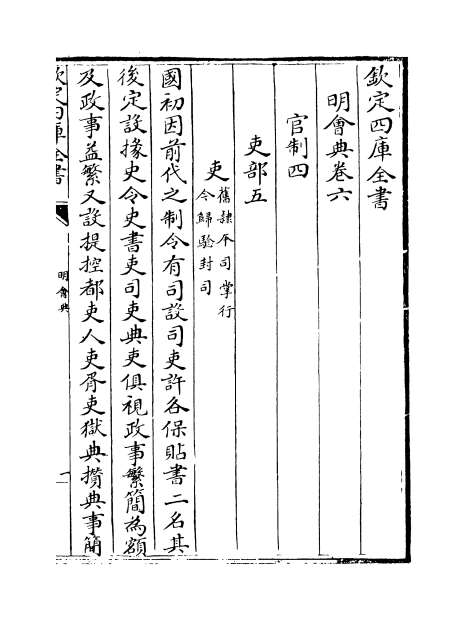 欽定四庫全書
明會典卷六
官制四
吏部五
吏
舊隷本司掌行
今歸驗封司
國初因前代之制令有司設司吏許各保貼書二名其
後定設掾史令史書吏司吏典吏俱視政事繁簡為額
及政事益繁又設提控都吏人吏胥吏獄典攢典事簡
欽定四庫全書
明會典
一